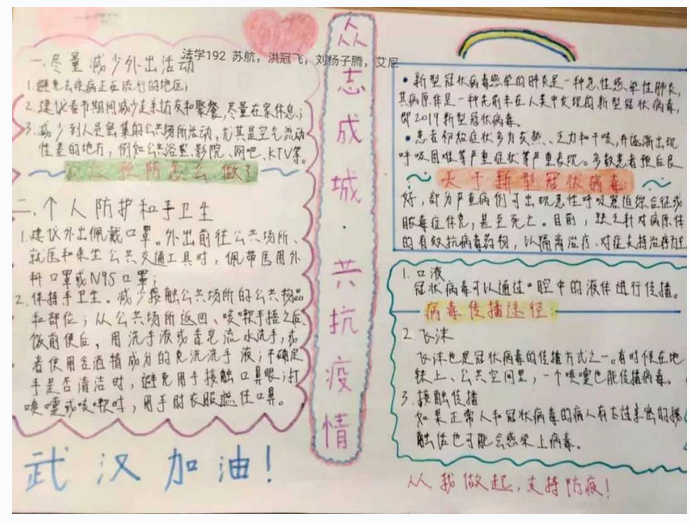 法学192 苏航，洪冠飞，刘杨子腾，艾尼
众志成城·共抗疫情
一.尽量减少外出活动
1.避免去疾病正在流行的地区；
2.建议春节期间减少走亲访友和聚餐,尽量在家休息；
3.减少到人员密集的公共场所活动,尤其是空气流动
性差的地方，例如公共浴室、影院、网吧、KTV等。
预防怎么做？
二.个人防护和手卫生
1.建议外出佩戴口罩。外出前往公共场所、
就医和乘坐公共交通工具时，佩带医用外
科口罩或N95口罩；
2.保持手卫生。减少接触公共场所的公共物品
和部位；从公共场所返回、咳嗽手捂之后、
饭前便后，用洗手液或香皂流水洗手,或
者使用含酒精成分的免洗洗手液；不确定
手是否清洁时，避免用手接触口鼻眼；打
喷嚏或咳嗽时，用手肘衣服遮住口鼻。
武汉加油！
•新型冠状病毒感染的肺炎是一种急性感染性肺炎,
其病原体是一种先前未在人类中发现的新型冠状病毒,
即2019新型冠状病毒。
•患者初始症状多为发热、乏力和干咳,并逐渐出现
呼吸困难等严重症状等严重表现。多数患者预后良
关于新型冠状病毒：
好，部分严重病例可出现急性呼吸窘迫综合征或
脓毒症休克，甚至死亡。目前，缺乏针对病原体
的有效抗病毒药物，以隔离治疗、对症支持治疗为主
1.口液
冠状病毒可以通过口腔中的液体进行传播。
病毒传播途径：
2.飞沫
飞沫也是冠状病毒的传播方式之一。有时候在地
铁上、公共空间里，一个喷嚏也能传播病毒。
3.接触传播
如果正常人和冠状病毒的病人有去过亲密的接
触法也可能会感染上病毒。
从我做起，支持防疫！